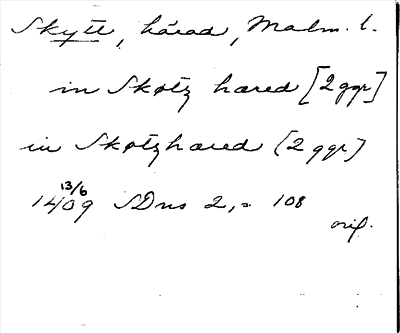 Skytt, härad, Malm. l.
in Skøtz hæred [2 ggr]
in Skøtzhæred (2 ggr)
13/6
1409 SDns 2, 108
orig.